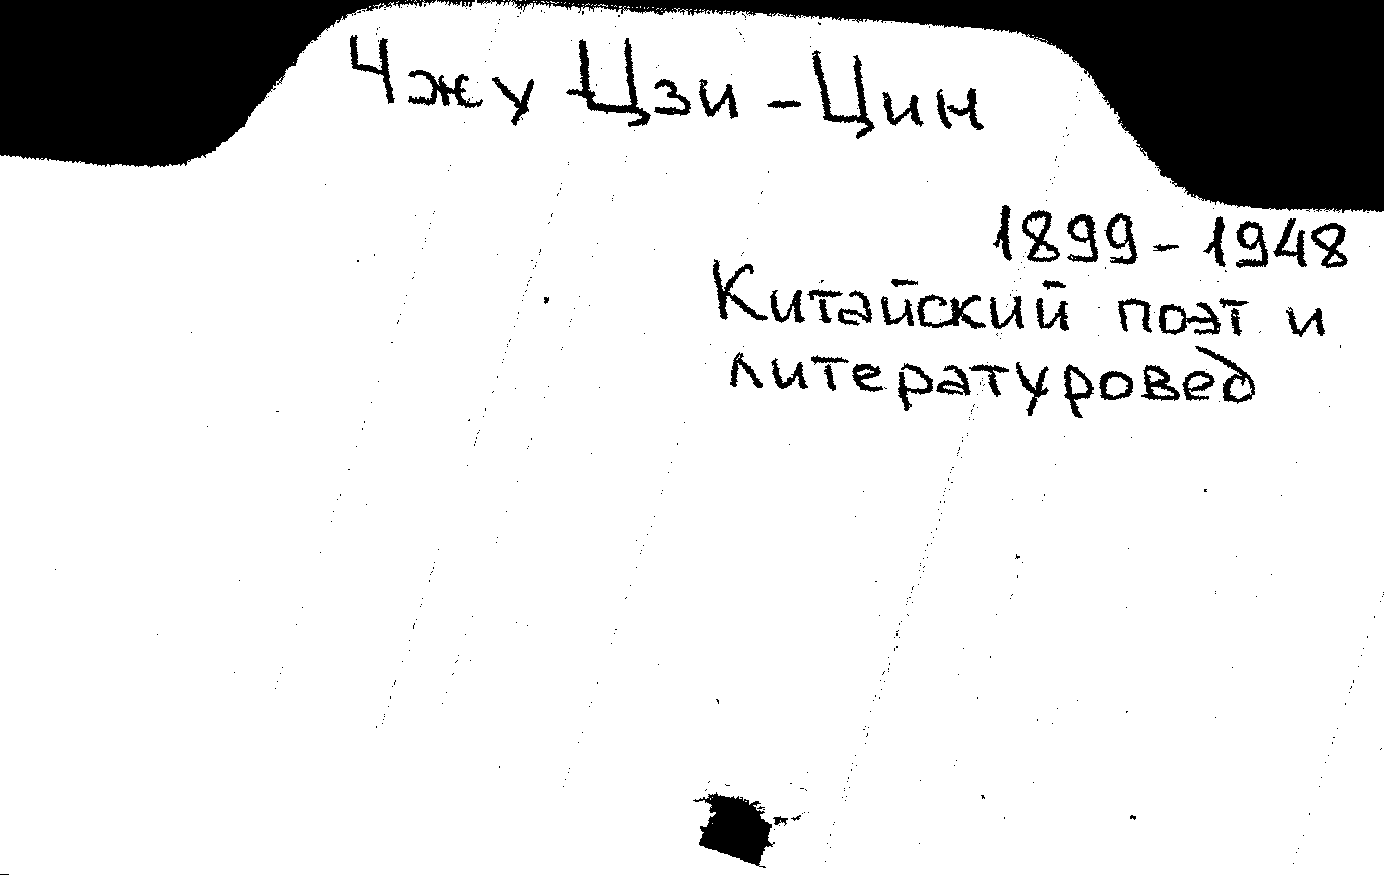 Чжу Цзи-Цин
1899-1948
Китайский поэт и
литературовед